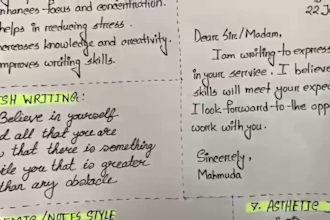 enhances focus and concentration.
helps in reducing stress.
increases knowledge and creativity.
improves writing skills.
SH WRITING:
Believe in yourself
d all that you are
that there is something
ide you that is greater
than any obstacle
/NOTES STYLE
22 J
Dear Sir/Madam,
I am writing to express
in your service. I believe
skills will meet your expec
I look forward to the opp
work with you.
Sincerely,
Mahmuda
7. ASTHETIC